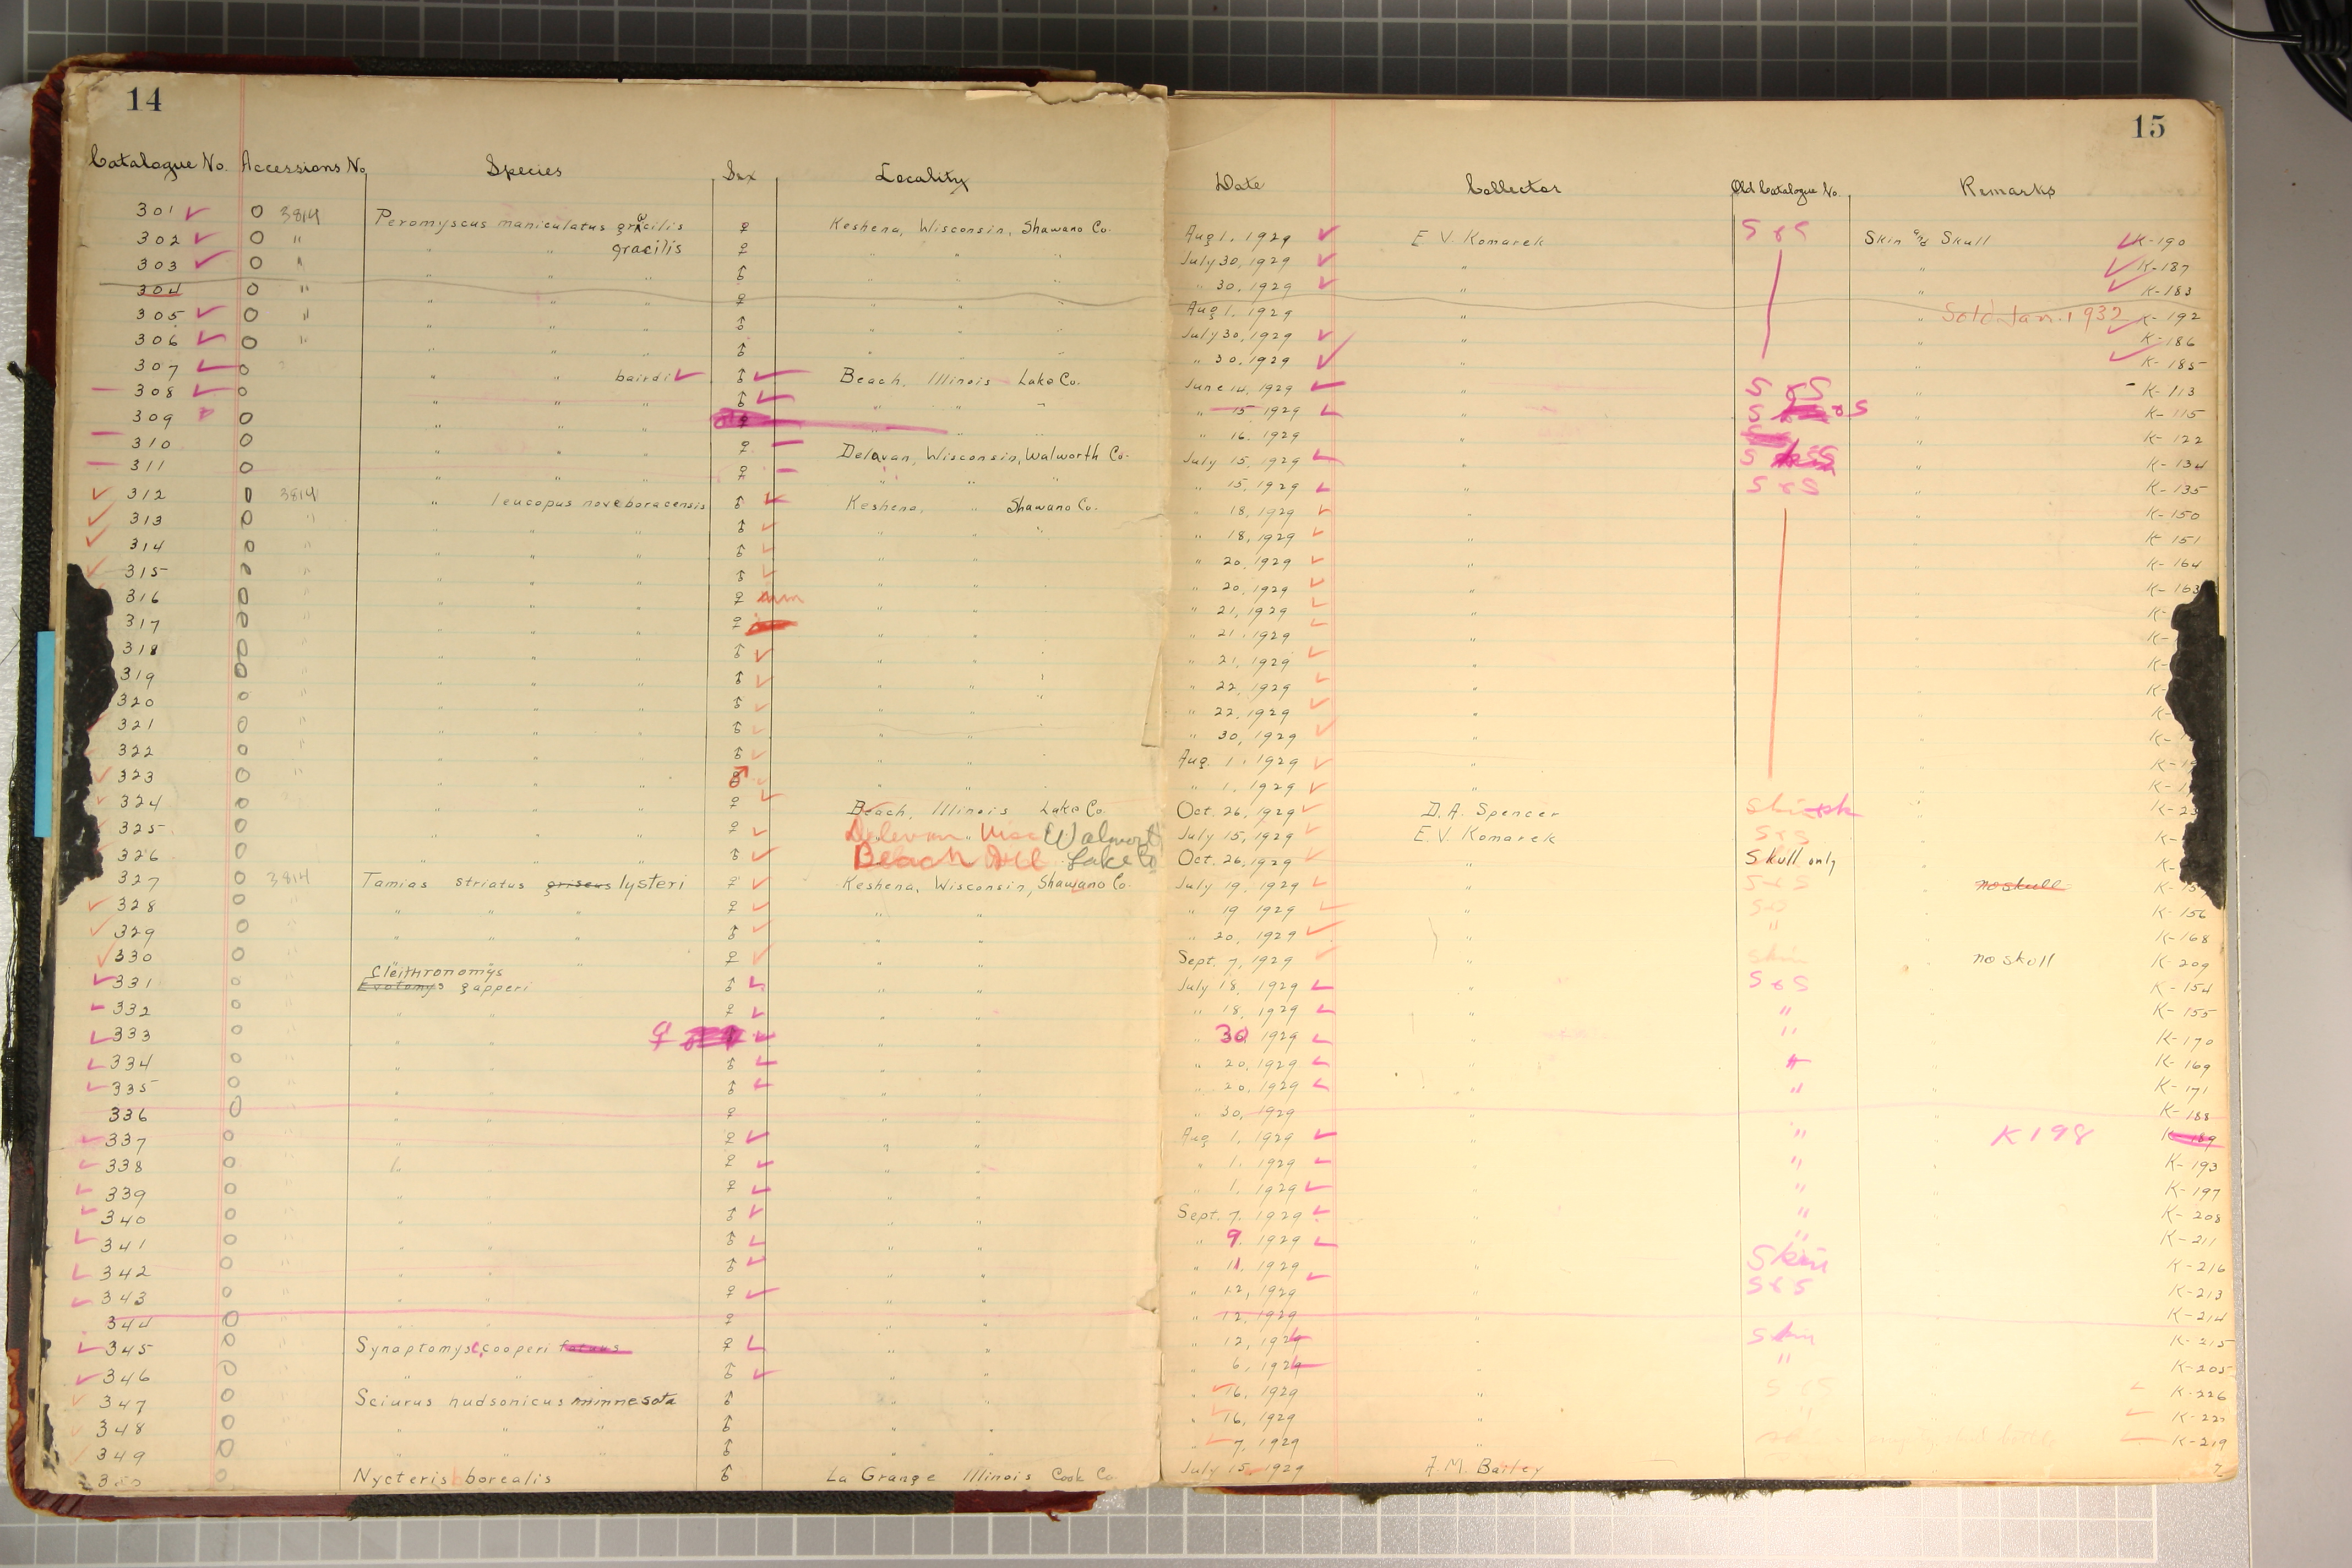 14
15
Catalogue No. Accessions No. Species Sex Locality Date Collector Old Catalogue No. Remarks
301 0 3814 Peromyscus maniculatus gracilis ♀ Keshena, Wisconsin, Shawano Co. Aug 1, 1929 E. V. Komarek S & S Skin and Skull K-190
302 0 " " " gracilis ♀ " " " July 30, 1929 " " K-187
303 0 " " " " ♂ " " " " 30, 1929 " " K-183
304 0 " " " " ♀ " " " Aug 1, 1929 " " Sold Jan. 1932 K-192
305 0 " " " " ♂ " " " July 30, 1929 " " K-186
306 0 " " " " ♂ " " " " 30, 1929 " " K-185
307 0 " " bairdi ♂ Beach, Illinois Lake Co. June 14, 1929 " S & S " K-113
308 0 " " " ♂ " " " " 15 1929 " S & S " K-115
309 0 " " " " " " " 16, 1929 " " K-122
310 0 " " " ♀ Delavan, Wisconsin, Walworth Co. July 15, 1929 " S " K-134
311 0 " " " ♀ " " " " 15, 1929 " S & S " K-135
312 0 3814 " leucopus noveboracensis ♂ Keshena, " Shawano Co. " 18, 1929 " " K-150
313 0 " " " " ♂ " " " " 18, 1929 " " K-151
314 0 " " " " ♂ " " " 20, 1929 " " K-164
315 0 " " " " ♂ " " " 20, 1929 " " K-163
316 0 " " " " ♀ " " " 21, 1929 " " K-
317 0 " " " " ♀ " " " 21, 1929 " " K-
318 0 " " " " ♂ " " " 21, 1929 " " K-
319 0 " " " " ♂ " " " 22, 1929 " " K-
320 0 " " " " ♂ " " " " 22, 1929 " " K-
321 0 " " " " ♂ " " " 30, 1929 " " K-
322 0 " " " " ♂ " " Aug. 1, 1929 " " K-
323 0 " " " " ♂ " " " 1, 1929 " " K-
324 0 " " " ♀ Beach, Illinois Lake Co. Oct. 26, 1929 D. A. Spencer K-
325 0 " " " ♀ Delevan Wisc Walworth July 15, 1929 E. V. Komarek S & S K-
326 0 " " " ♂ Beach Ill Lake Co Oct. 26, 1929 " Skull only K-
327 0 3814 Tamias striatus griseus lysteri ♀ Keshena, Wisconsin, Shawano Co. July 19, 1929 " S & S no skull K-
328 0 " " " ♀ " " " 19 1929 " S & S K-156
329 0 " " " ♂ " " " 20, 1929 " " K-168
330 0 " " " ♀ " " Sept. 7, 1929 " skin no skull K-209
Cleithronomys
331 0 Evotomys gapperi ♂ " " July 18, 1929 " S & S K-154
332 0 " " ♀ " " " 18, 1929 " " K-155
333 0 " " ♀ " " " 30, 1929 " " K-170
334 0 " " ♂ " " " 20, 1929 " " K-169
335 0 " " ♂ " " " 20, 1929 " " K-171
336 0 " " ♀ " " " 30, 1929 " K-188
337 0 " " ♀ " " Aug 1, 1929 " " K198 K-189
338 0 " " ♀ " " " 1, 1929 " " K-193
339 0 " " ♀ " " " 1, 1929 " " K-197
340 0 " " ♂ " " Sept. 7, 1929 " " K-208
341 0 " " ♂ " " " 9, 1929 " " K-211
342 0 " " ♂ " " " 11, 1929 " Skin K-216
343 0 " " ♀ " " " 12, 1929 " S & S K-213
344 0 " " ♀ " " " 12, 1929 " K-214
345 0 Synaptomys c. cooperi fatuus ♀ " " " 12, 1929 " Skin K-215
346 0 " " ♂ " " " 6, 1929 " " K-205
347 0 Sciurus hudsonicus minnesota ♂ " " " 16, 1929 " S & S K-226
348 0 " " " ♂ " " " 16, 1929 " K-22
349 0 " " " ♂ " " " 7, 1929 " K-219
350 0 Nycteris borealis ♂ La Grange Illinois Cook Co. July 15, 1929 A. M. Bailey ?